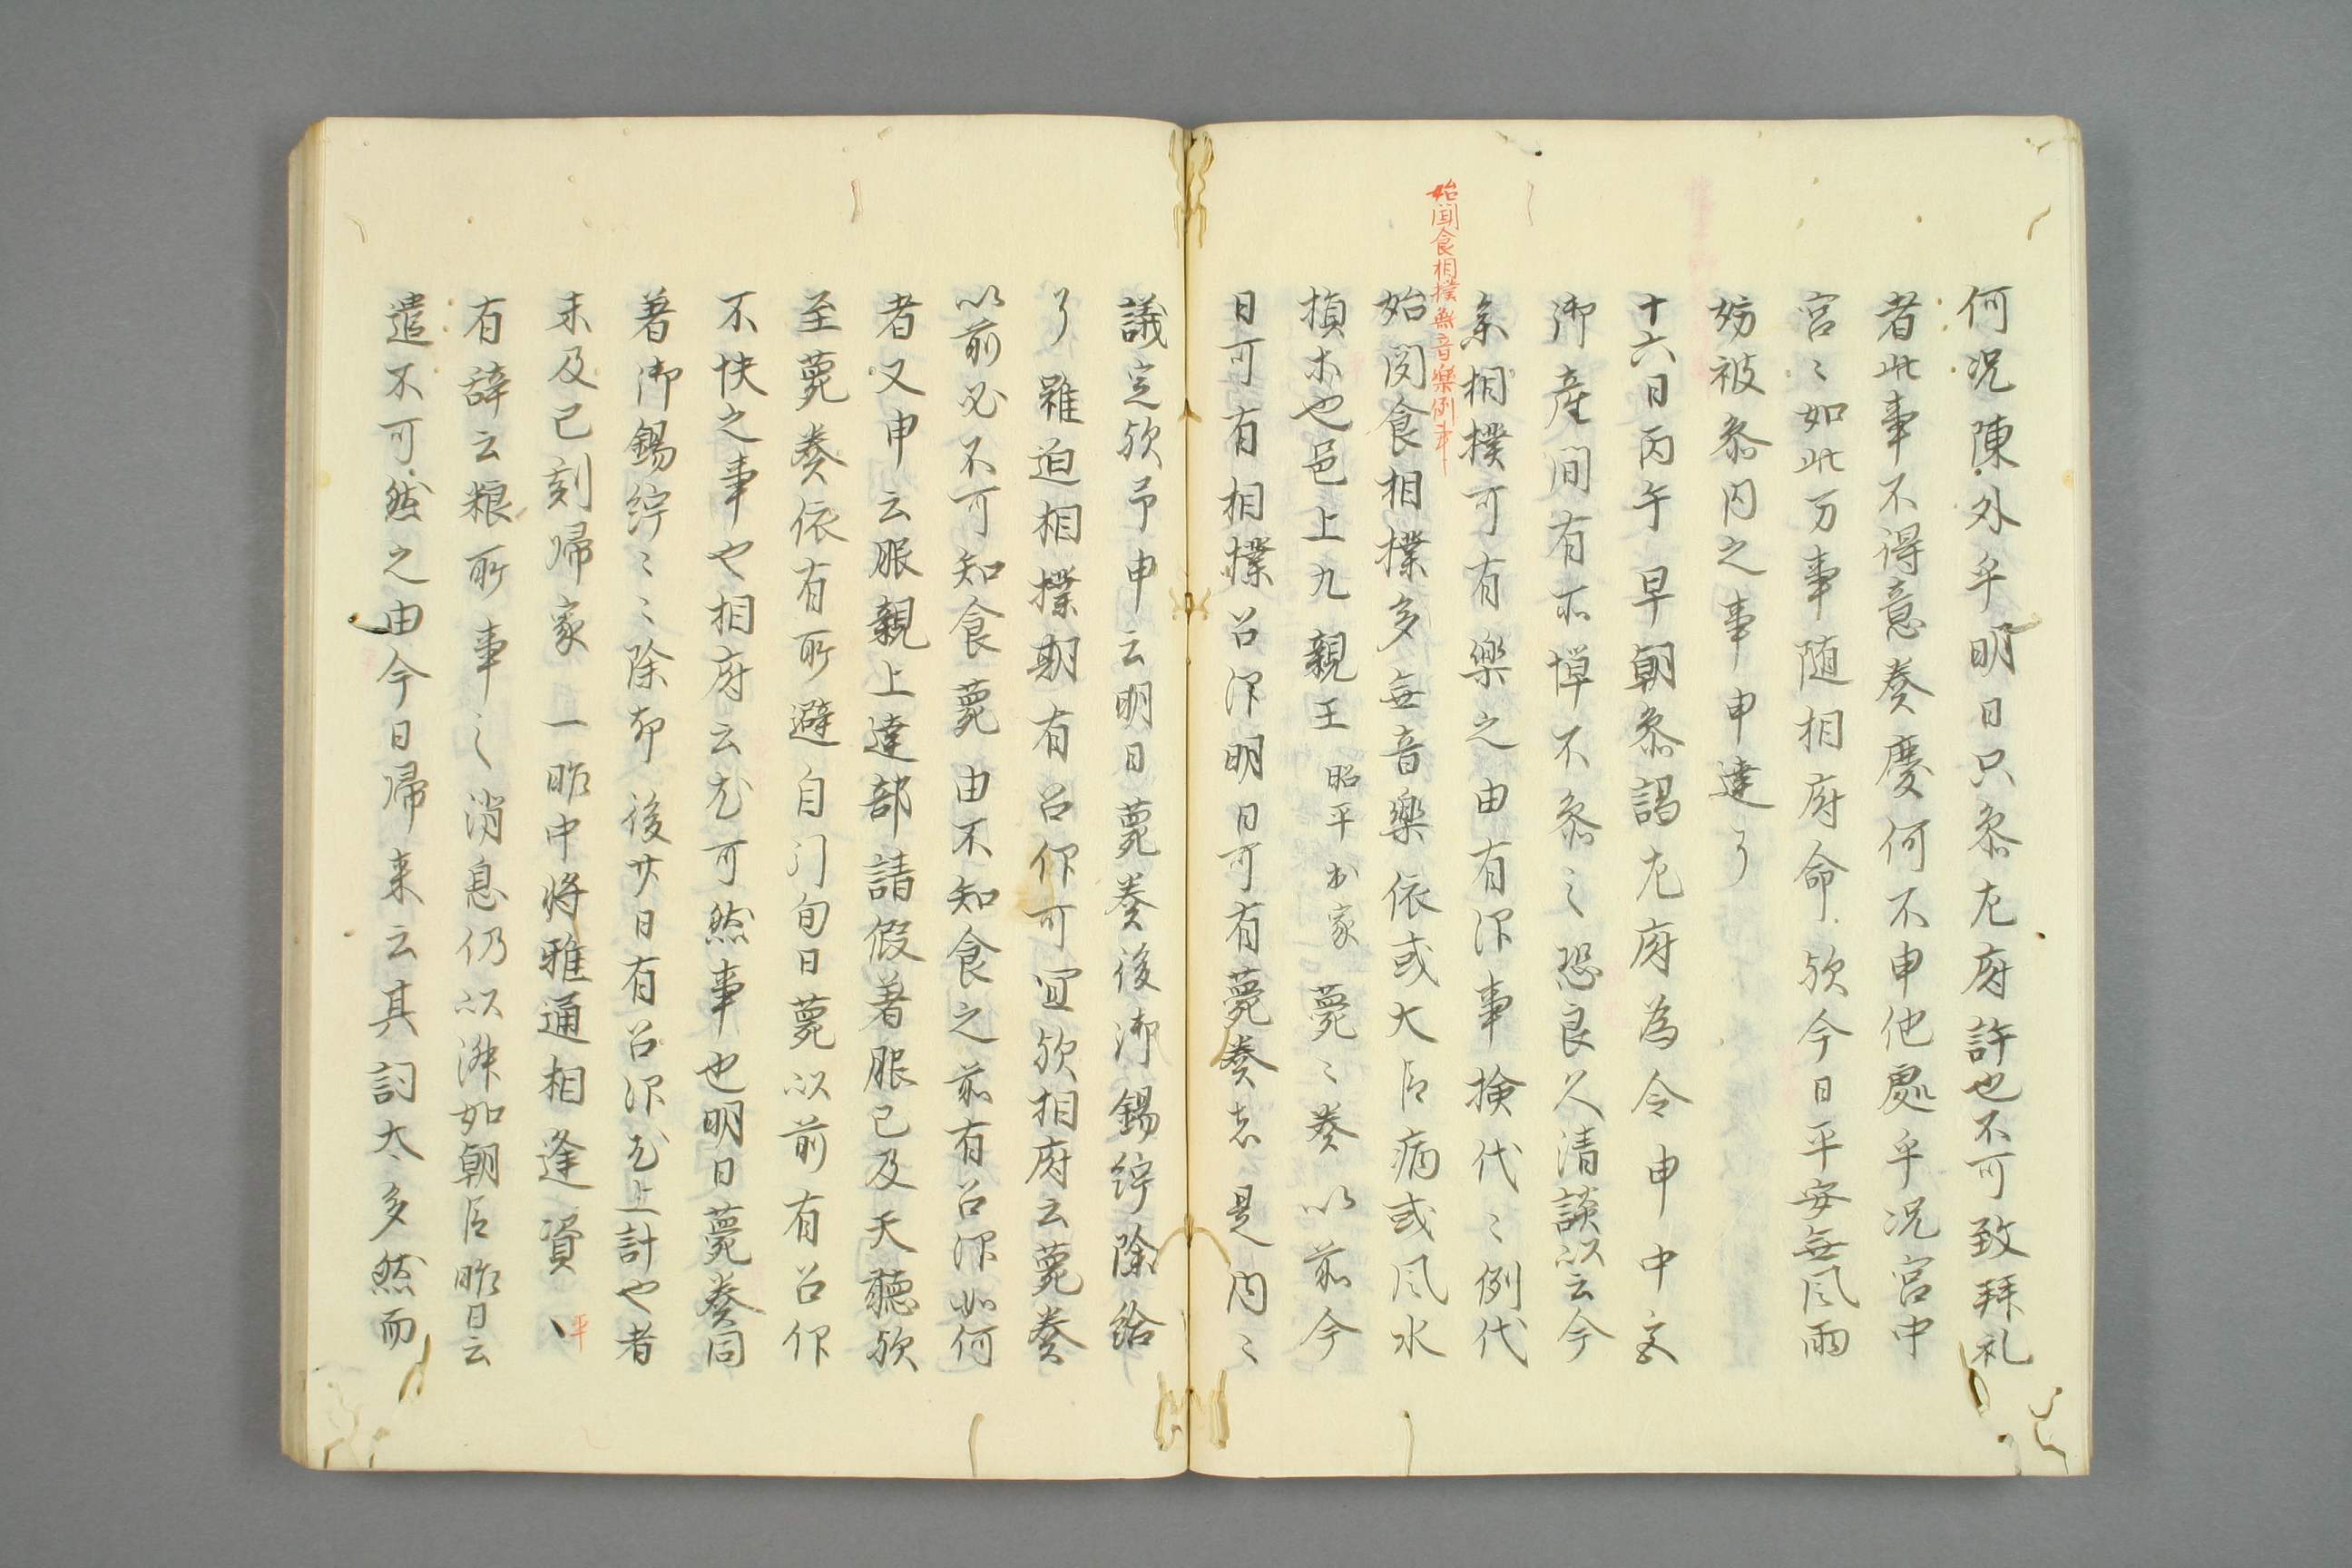 何况陳外乎明日只参左府許也不可致拜礼
者此事不得意奏慶何不申他處乎况宮中
宮〻如此万事随相府命欤今日平安無風雨
妨被参内之事申達了
十六日丙午早朝参謁左府為令申中文
御産間有所憚不参之恐良久清談以云今
年相撲可有樂之由有作事検代〻例代
始聞食相撲多無音樂依或大臣病或風水
損木也邑上九親王昭平出家薨〻奏以前今
日可有相撲召作明日可有薨奏者是内〻
始聞食相撲無音樂例事
議定欤予申云明日薨奏後御錫紵除給
了雖迫相撲期有召作可冝欤相府云薨奏
以前必不可知食薨由不知食之前有召作如何
者又申云服親上達部請假著服已及天聽欤
至薨奏依有所避自门旬日薨以前有召作
不快之事也相府云尤可然事也明日薨奏同
著御錫紵〻〻除却後廿日有召作尤上計也者
未及已刻帰家一昨中將雅通相逢資平
有辞云粮所事之消息仍以濟如朝臣昨日云
遣不可然之由今日帰来云其詞太多然而